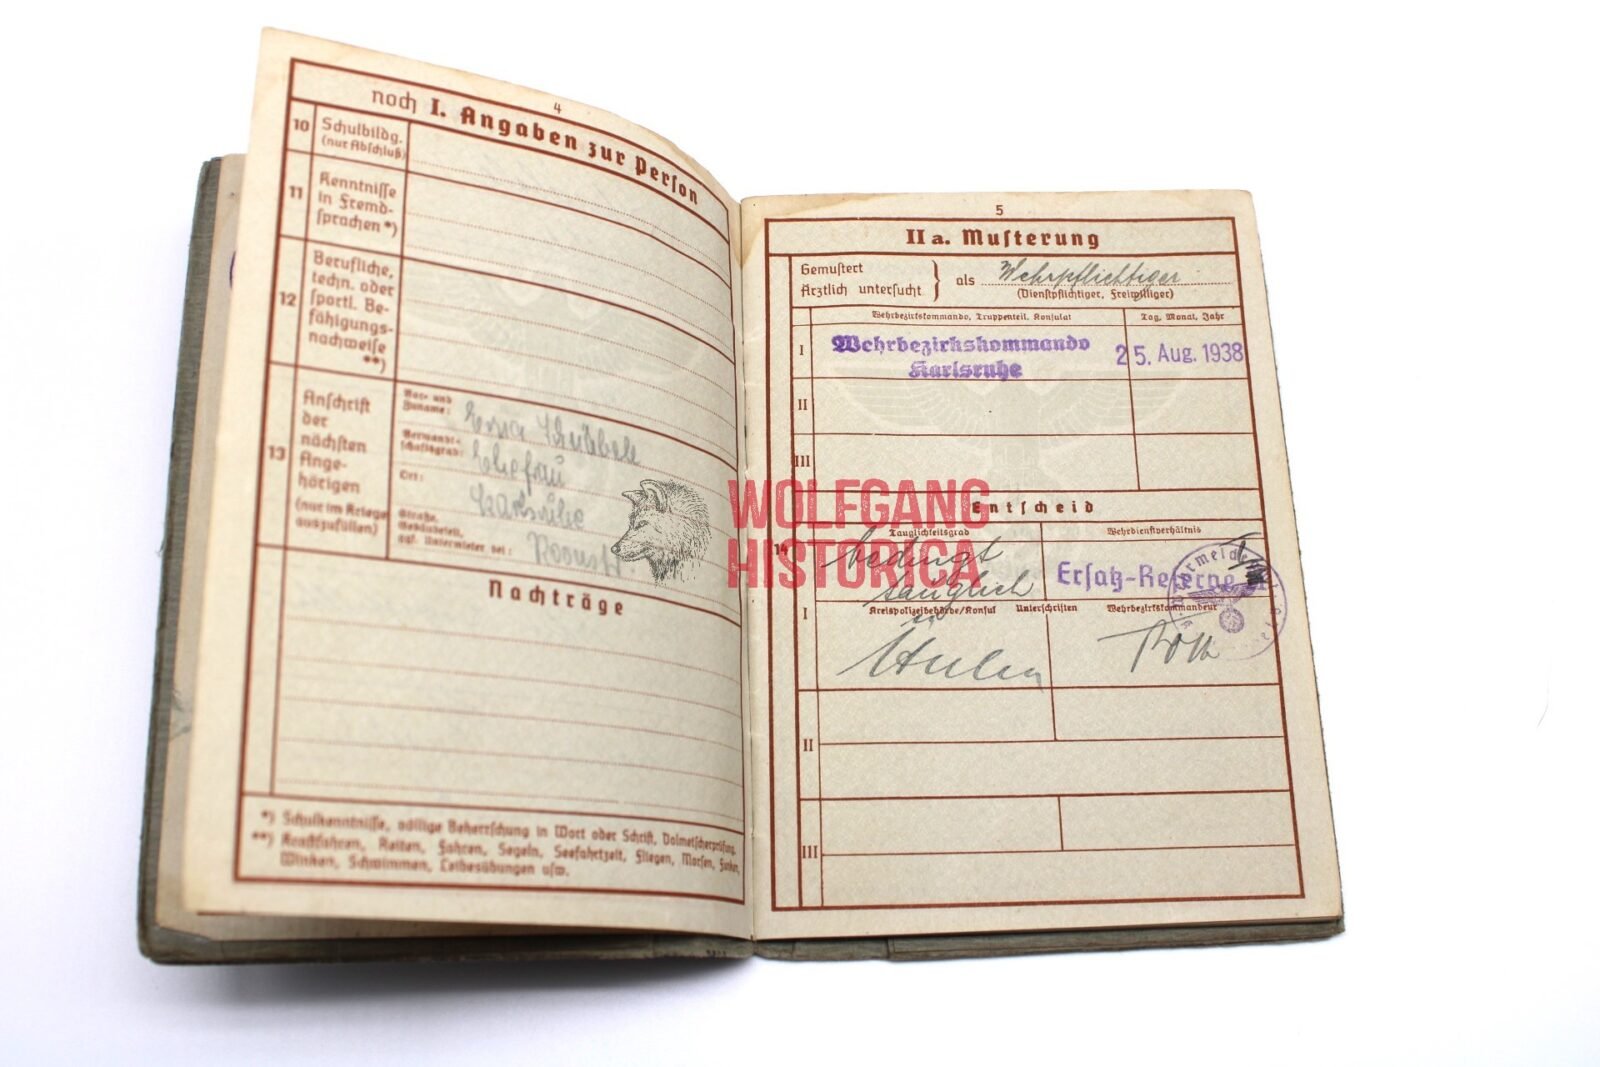 4
noch I. Angaben zur Person
10 Schulbildg.
(nur Abschluß)
11 Kenntnisse
in Fremd-
sprachen *)
12 Berufliche,
techn. oder
sportl. Be-
fähigungs-
nachweise
**)
13 Anschrift
der
nächsten
Ange-
hörigen
(nur im Kriege
auszufüllen)
Vor- und
Zuname:
Verwandt-
schaftsgrad: Ehefrau
Ort: Karlsruhe
Straße,
Gebäudeteil,
ggf. Untermieter bei:
Nachträge
*) Schulkenntnisse, völlige Beherrschung in Wort oder Schrift, Dolmetscherprüfung.
**) Kraftfahren, Reiten, Fahren, Segeln, Seefahrtzeit, Fliegen, Morsen, Funken,
Winken, Schwimmen, Leibesübungen usw.
5
II a. Musterung
Gemustert
Ärztlich untersucht } als Wehrpflichtiger
(Dienstpflichtiger, Freiwilliger)
Wehrbezirkskommando, Truppenteil, Konsulat Tag, Monat, Jahr
I Wehrbezirkskommando
Karlsruhe 25. Aug. 1938
II
III
Entscheid
14 Tauglichkeitsgrad Wehrdienstverhältnis
bedingt
tauglich Ersatz-Reserve
I Kreispolizeibehörde/Konsul Unterschriften Wehrbezirkskommandeur
II
III
WOLFGANG
HISTORICA